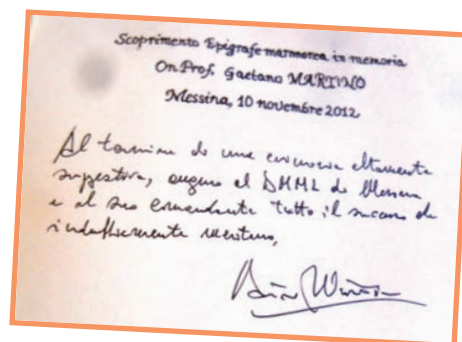 Scoprimento Epigrafe marmorea in memoria
On. Prof. Gaetano MARTINO
Messina, 10 novembre 2012
Al termine di una cerimonia altamente
suggestiva, auguro al DMML di Messina
e al suo comandante tutto il successo che
indubbiamente meritano,